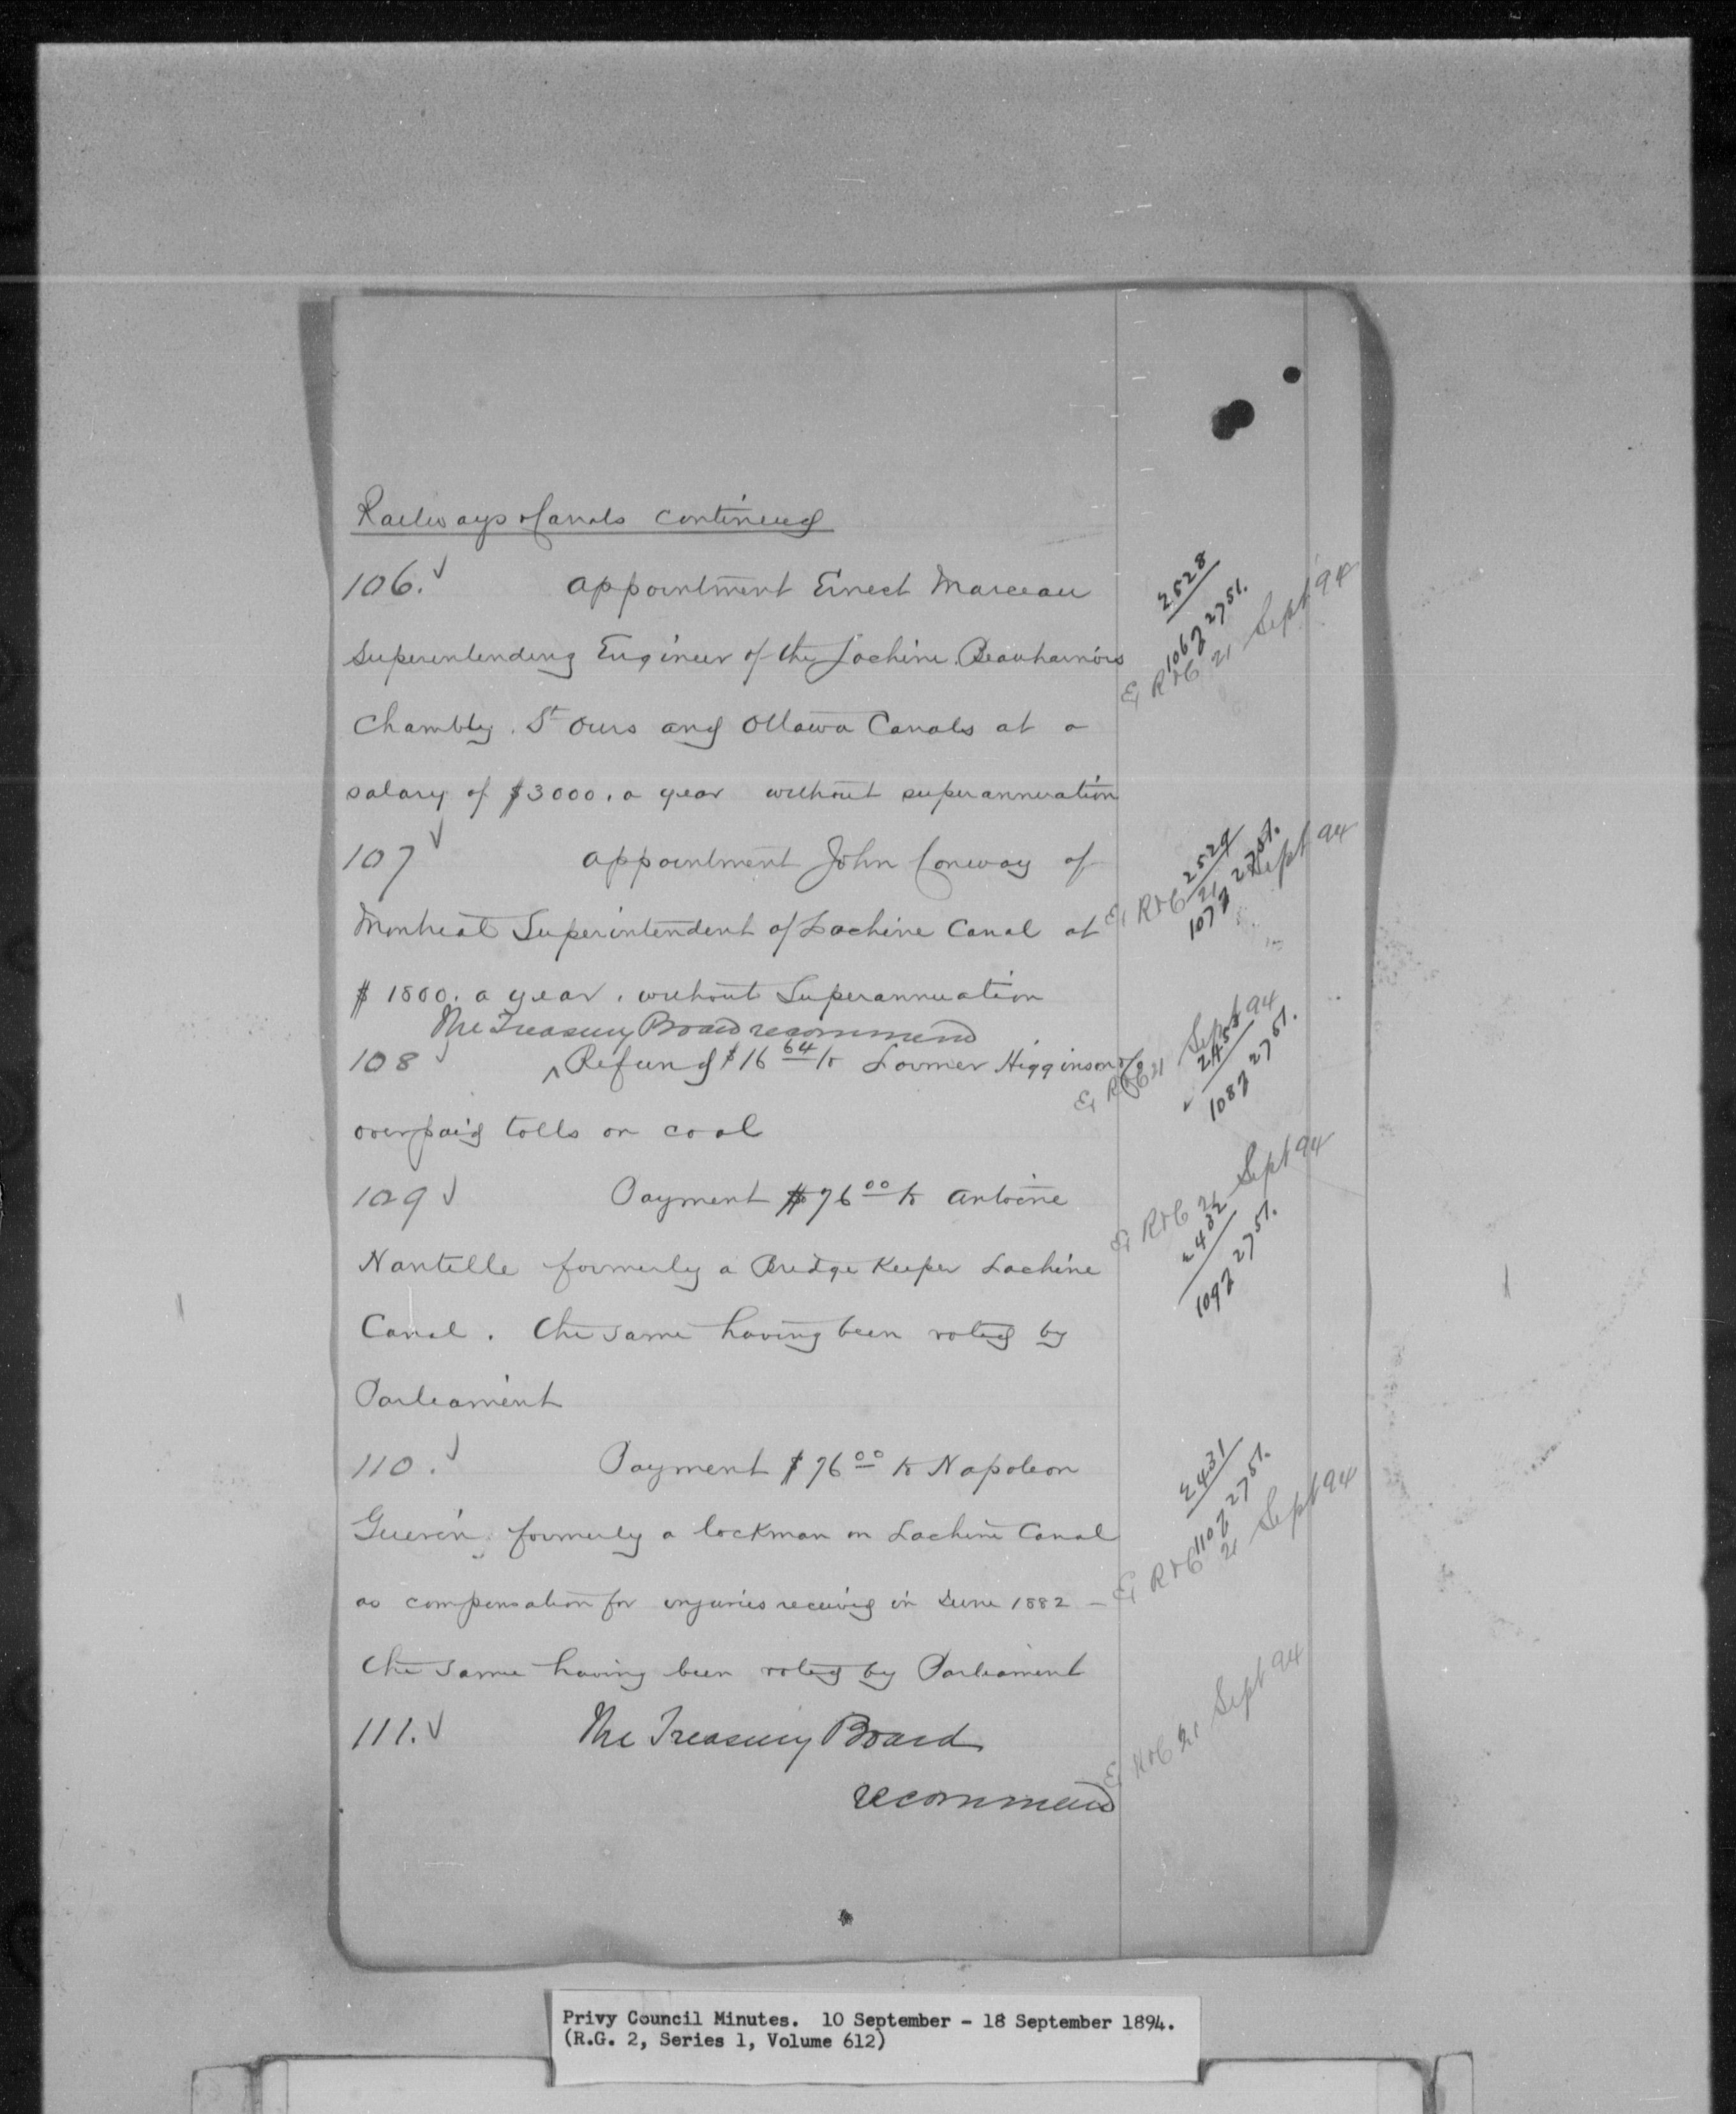 Railways & Canals continued
106. Appointment Ernest Marceau
2528
106g 2751.
E, R&C 21 Sept 94
Superintending Engineer of the Lachine, Beauharnois
Chambly, St Ours and Ottawa Canals at a
salary of $3000. a year without superannuation
107 Appointment John Conway of
2529
107g 2751.
E, R&C 21 Sept 94
Montreal Superintendent of Lachine Canal at
$1800. a year, without Superannuation
The Treasury Board recommend
108 ^ Refund $16 64 to Lormer Higginson & Co
2458
108g 2751.
E, R&C 21 Sept 94
overpaid tolls on coal
109 Payment $76 00 to Antoine
E, R&C 21 Sept 94
2432
109g 2751.
Nantelle formerly a Bridge Keeper Lachine
Canal. The same having been voted by
Parliament
110. Payment $76 00 to Napoleon
2431
110g 2751.
E, R&C 21 Sept 94
Guerin, formerly a lockman on Lachine Canal
as compensation for injuries received in June 1882 -
the same having been voted by Parliament
111. The Treasury Board
recommend
E, R&C 21 Sept 94
Privy Council Minutes. 10 September - 18 September 1894.
(R.G. 2, Series 1, Volume 612)